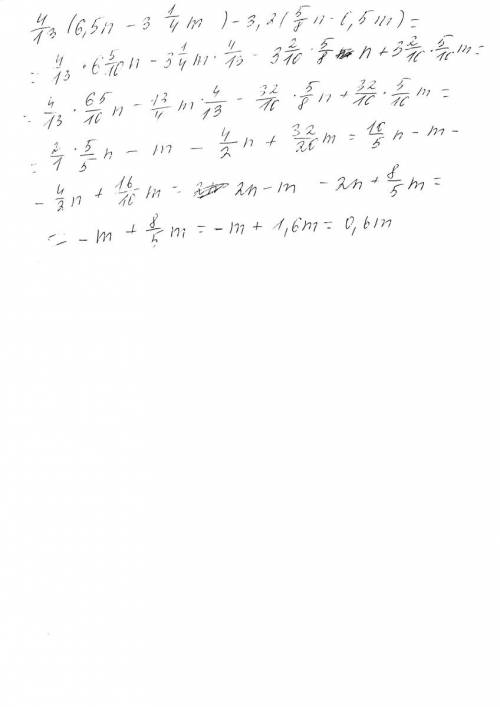 4/13 (6,5n - 3 1/4 m) - 3,2(5/8 n - 0,5m) =
= 4/13 · 6 5/10 n - 3 1/4 m · 4/13 - 3 2/10 · 5/8 n + 3 2/10 · 5/10 m =
= 4/13 · 65/10 n - 13/4 m · 4/13 - 32/10 · 5/8 n + 32/10 · 5/10 m =
= 2/1 · 5/5 n - m - 4/2 n + 32/20 m = 10/5 n - m -
- 4/2 n + 16/10 m = 2n - m - 2n + 8/5 m =
= - m + 8/5 m = - m + 1,6m = 0,6m